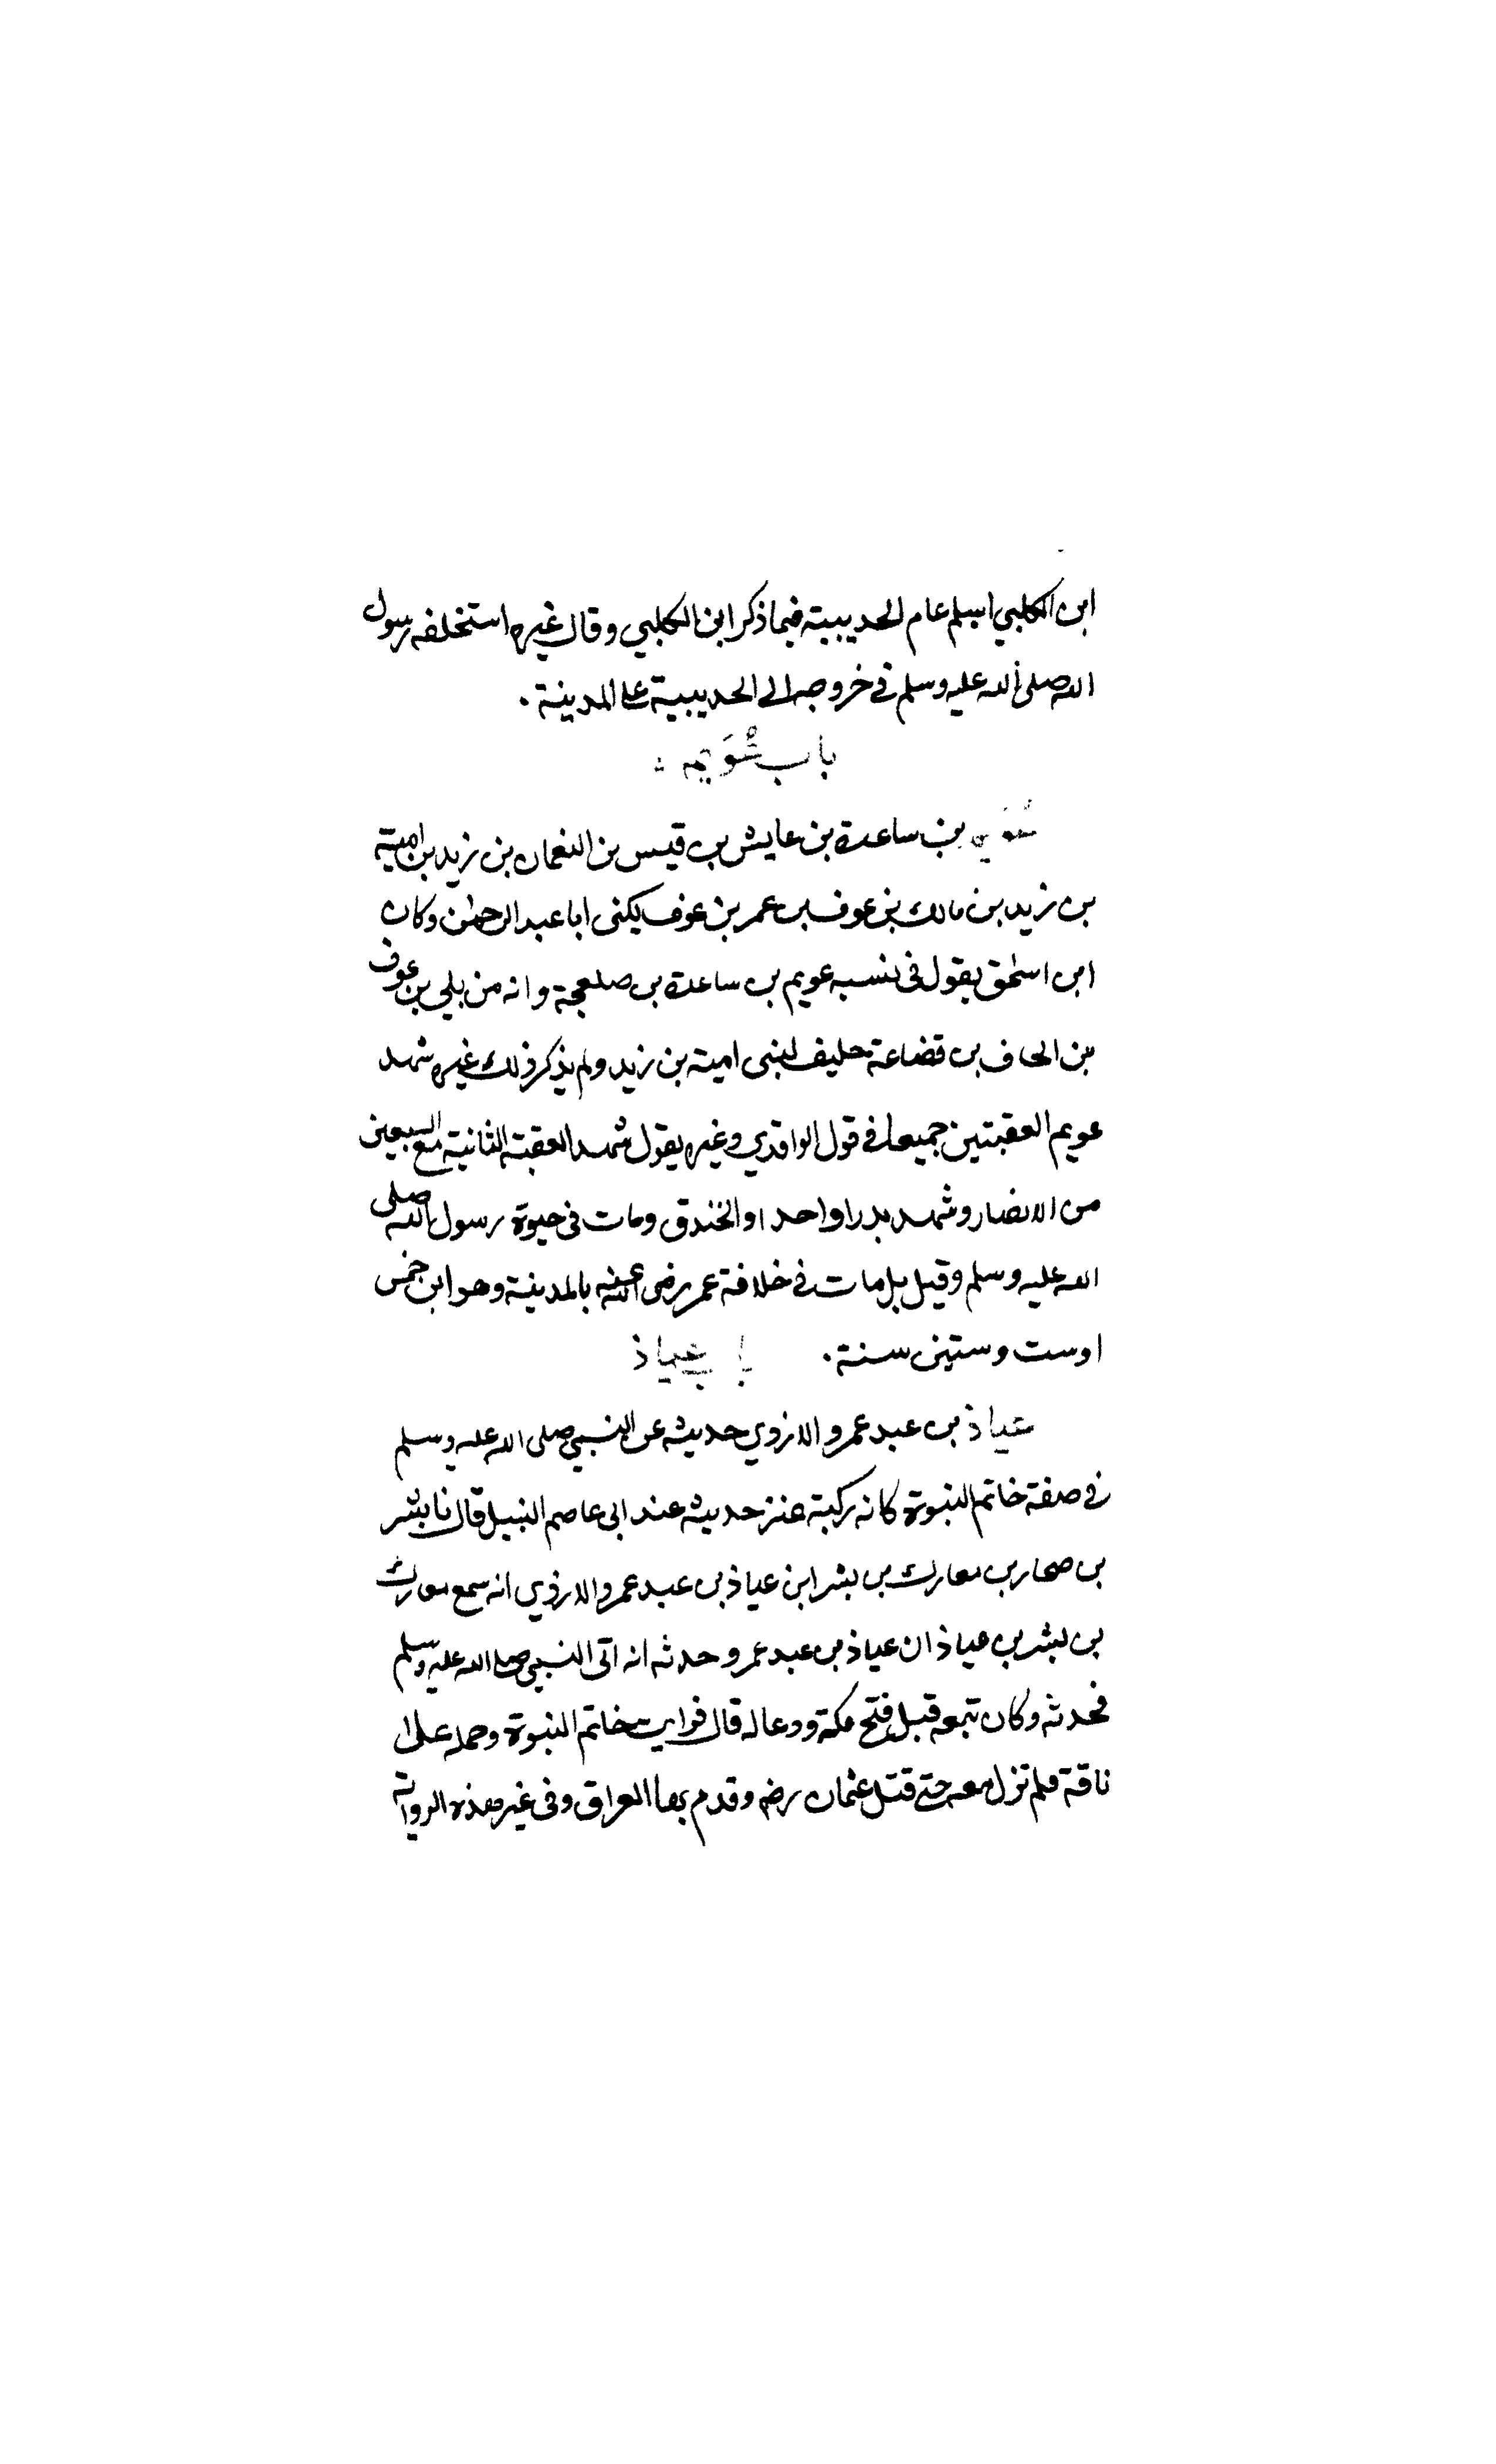 ابن الكلبي اسلم عام الحديبية فيما ذكر ابن الكلبي وقال غيره استخلفه رسول
الله صلى الله عليه وسلم في خروجه الى الحديبية على المدينة .
باب عُوَيم
عويم بن ساعدة بن عايش بن قيس بن النعمان بن زيد بن امية
بن زيد بن مالك بن عوف بن عمر بن عوف يكنى ابا عبد الرحمن وكان
ابن اسحق يقول في نسبه عويم بن ساعدة بن صلعجة وانه من بلي بن عوف
بن الحاف بن قضاعة حليف لبنى امية بن زيد ولم يذكر ذلك غيره شهد
عويم العقبتين جميعا في قول الواقدي وغيره يقول شهد العقبة الثانية مع السبعين
من الانصار وشهد بدرا واحدا والخندق ومات في حيوة رسول الله صلى
الله عليه وسلم وقيل بل مات في خلافة عمر رضى الله عنه بالمدينة وهو ابن خمس
اوست وستين سنة . باب عياذ
عياذ بن عبد عمرو الازدي حديثه عن النبي صلى الله عليه وسلم
في صفة خاتم النبوة كانه ركبة عنز حديثه عند ابى عاصم النبيل قال نا بشر
بن صحار بن معارك بن بشر ابن عياذ بن عبد عمرو الازدي انه سمع معارك
بن بشر بن عياذ ان عياذ بن عبد عمرو حدثه انه اتى النبي صلى الله عليه وسلم
فحدثه وكان تبعه قبل فتح مكة ودعا له قال فرايت خاتم النبوة وحمله على
ناقة فلم تزل معه حتى قتل عثمان رضه وقدم بها العراق وفى غير هذه الرواية